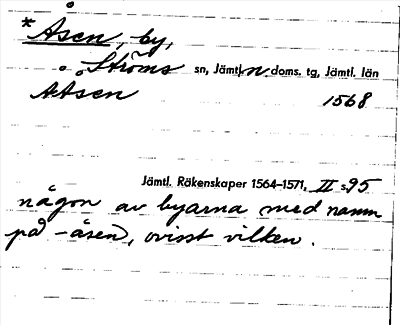 * Åsen, by,
Ströms sn, Jämt. n. doms. tg, Jämtl. län
Åsen 1568
Jämtl. Räkenskaper 1564–1571, III s. 95
någon av byarna med namn
på -åsen, ovisst vilken.